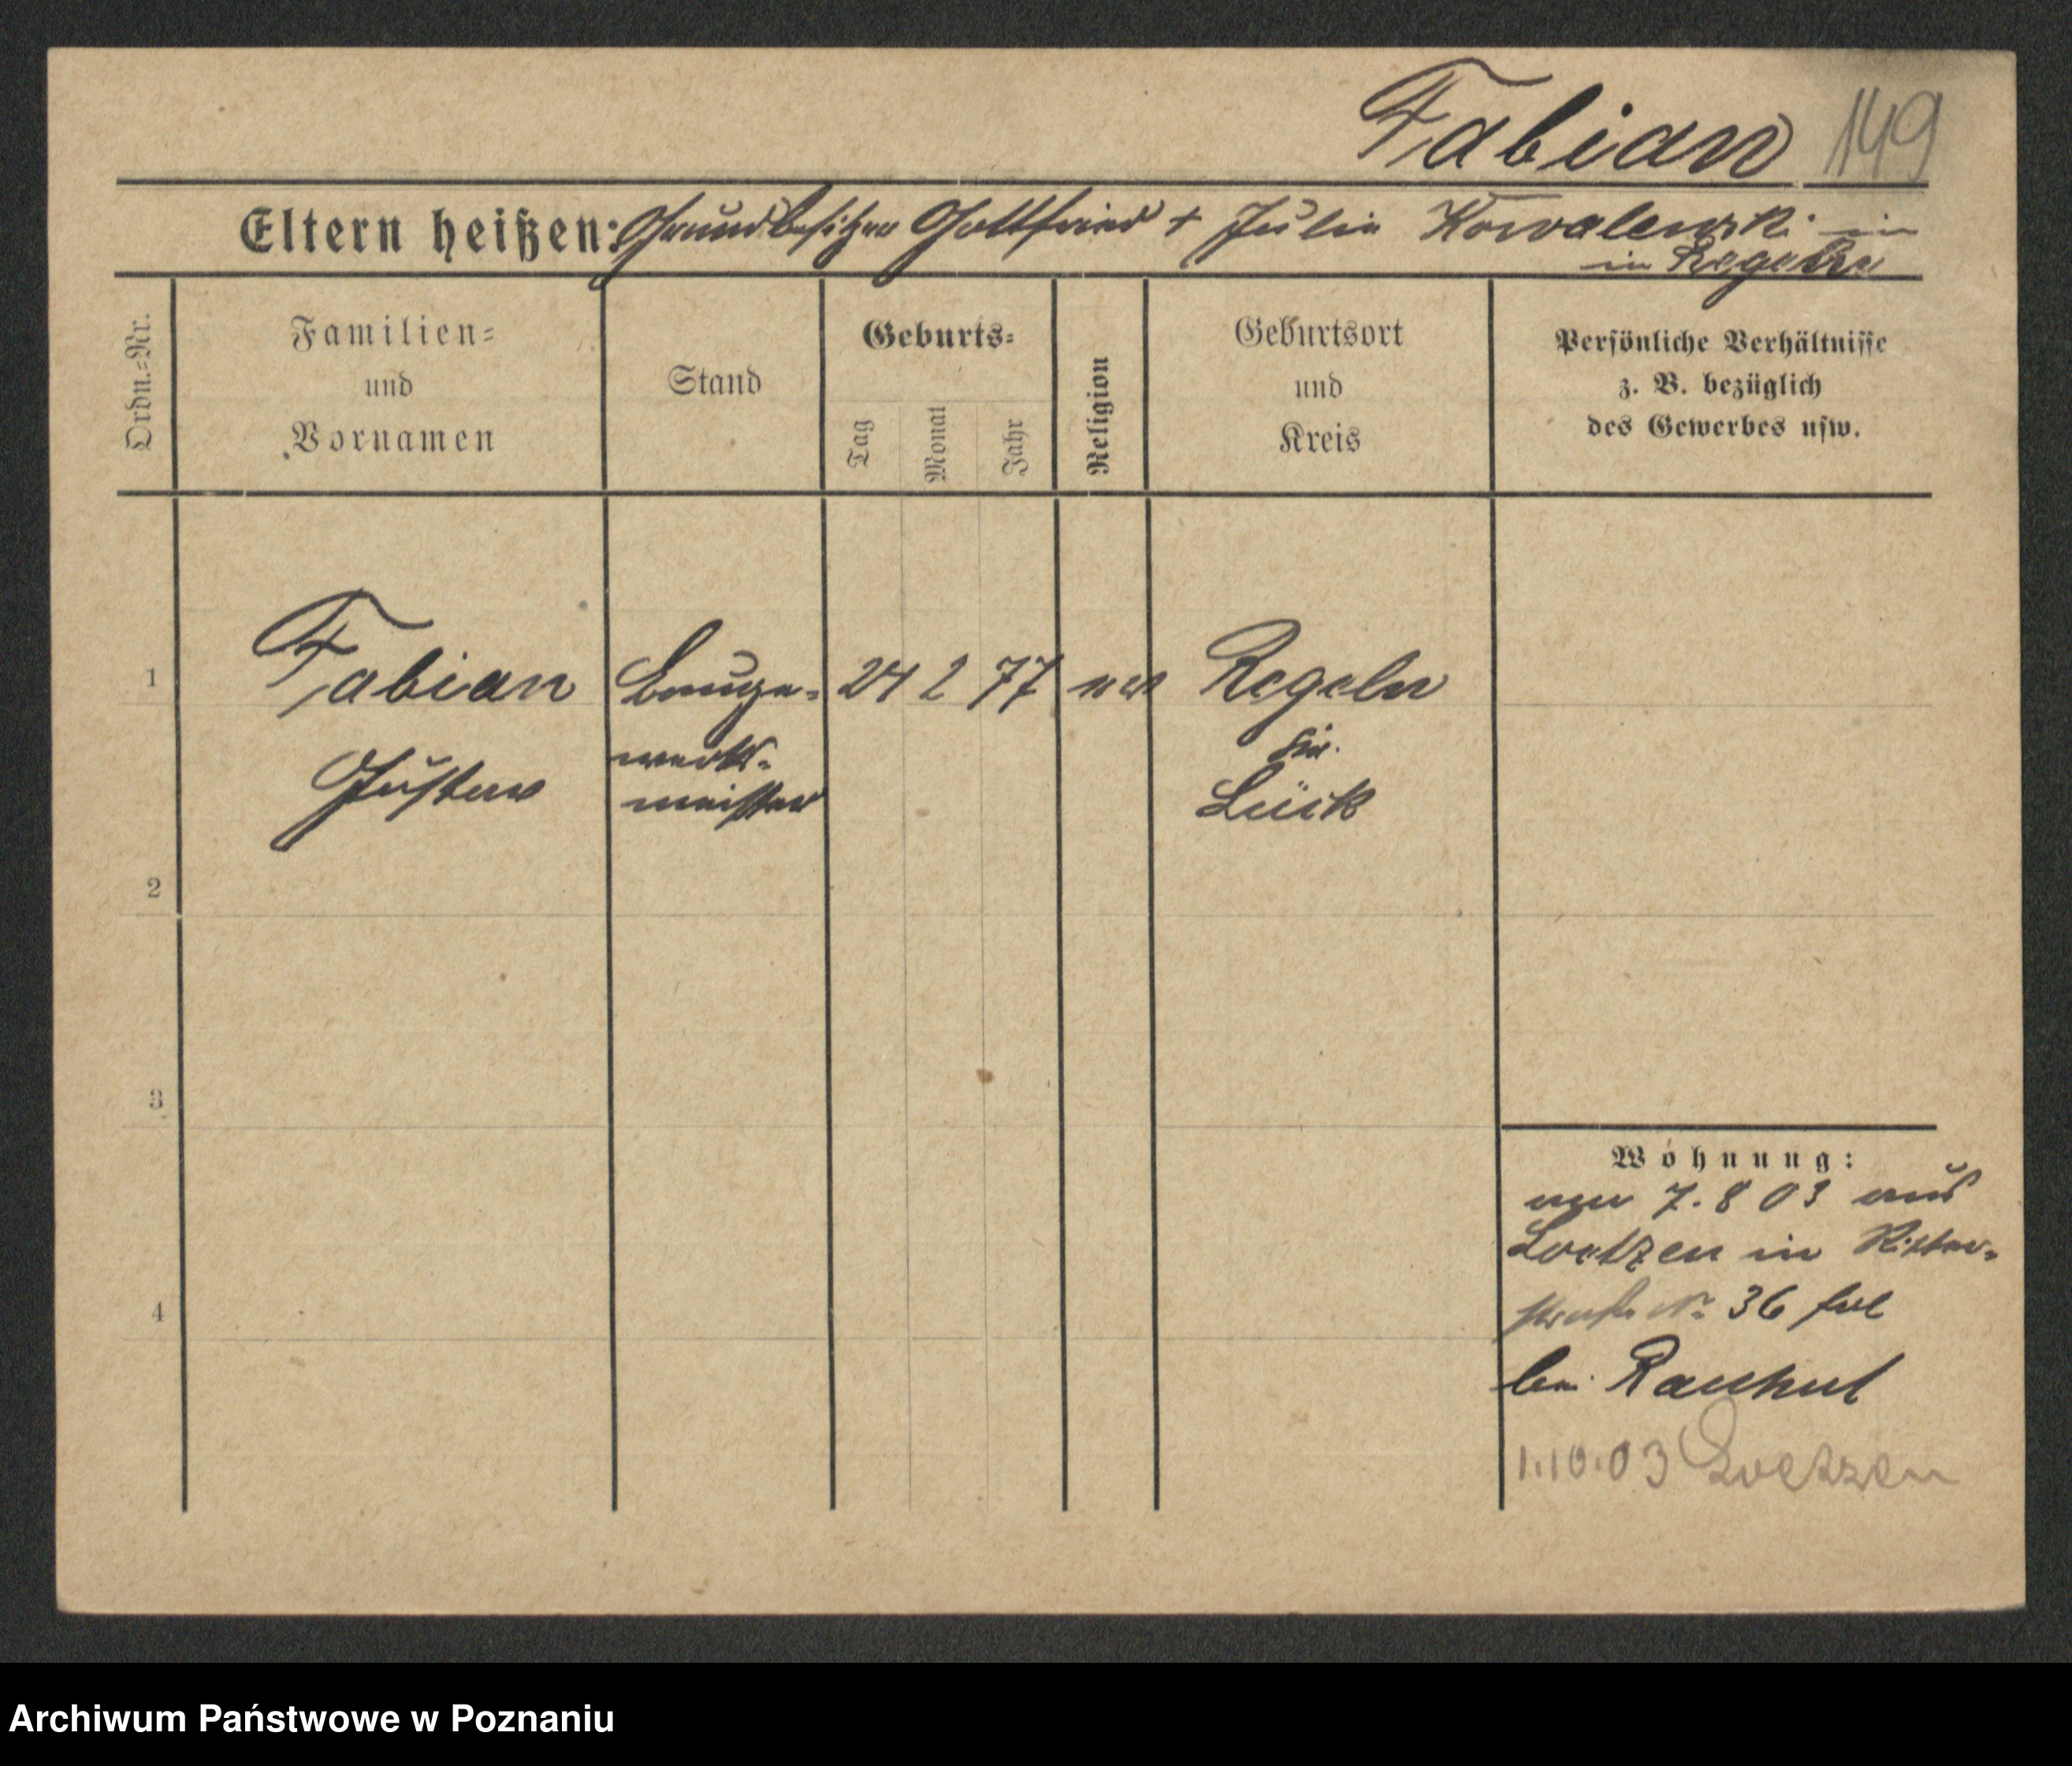 Fabian 149
Eltern heißen: Grundbesitzer Gottfried + Julie Kowalewski in
in Regeln
Ordn.=Nr.
Familien=
und
Vornamen
Stand
Geburts=
Tag
Monat
Jahr
Religion
Geburtsort
und
Kreis
Persönliche Verhältnisse
z. B. bezüglich
des Gewerbes usw.
1 Fabian Bauge= 24 2 77 ev Regeln
Gustav werks= Kr.
meister Lück
2
3
4
Wohnung:
am 7. 8 03 aus
Loetzen in Ritter=
straße No 36
bei Rauhut
1.10.03 Loetzen
Archiwum Państwowe w Poznaniu